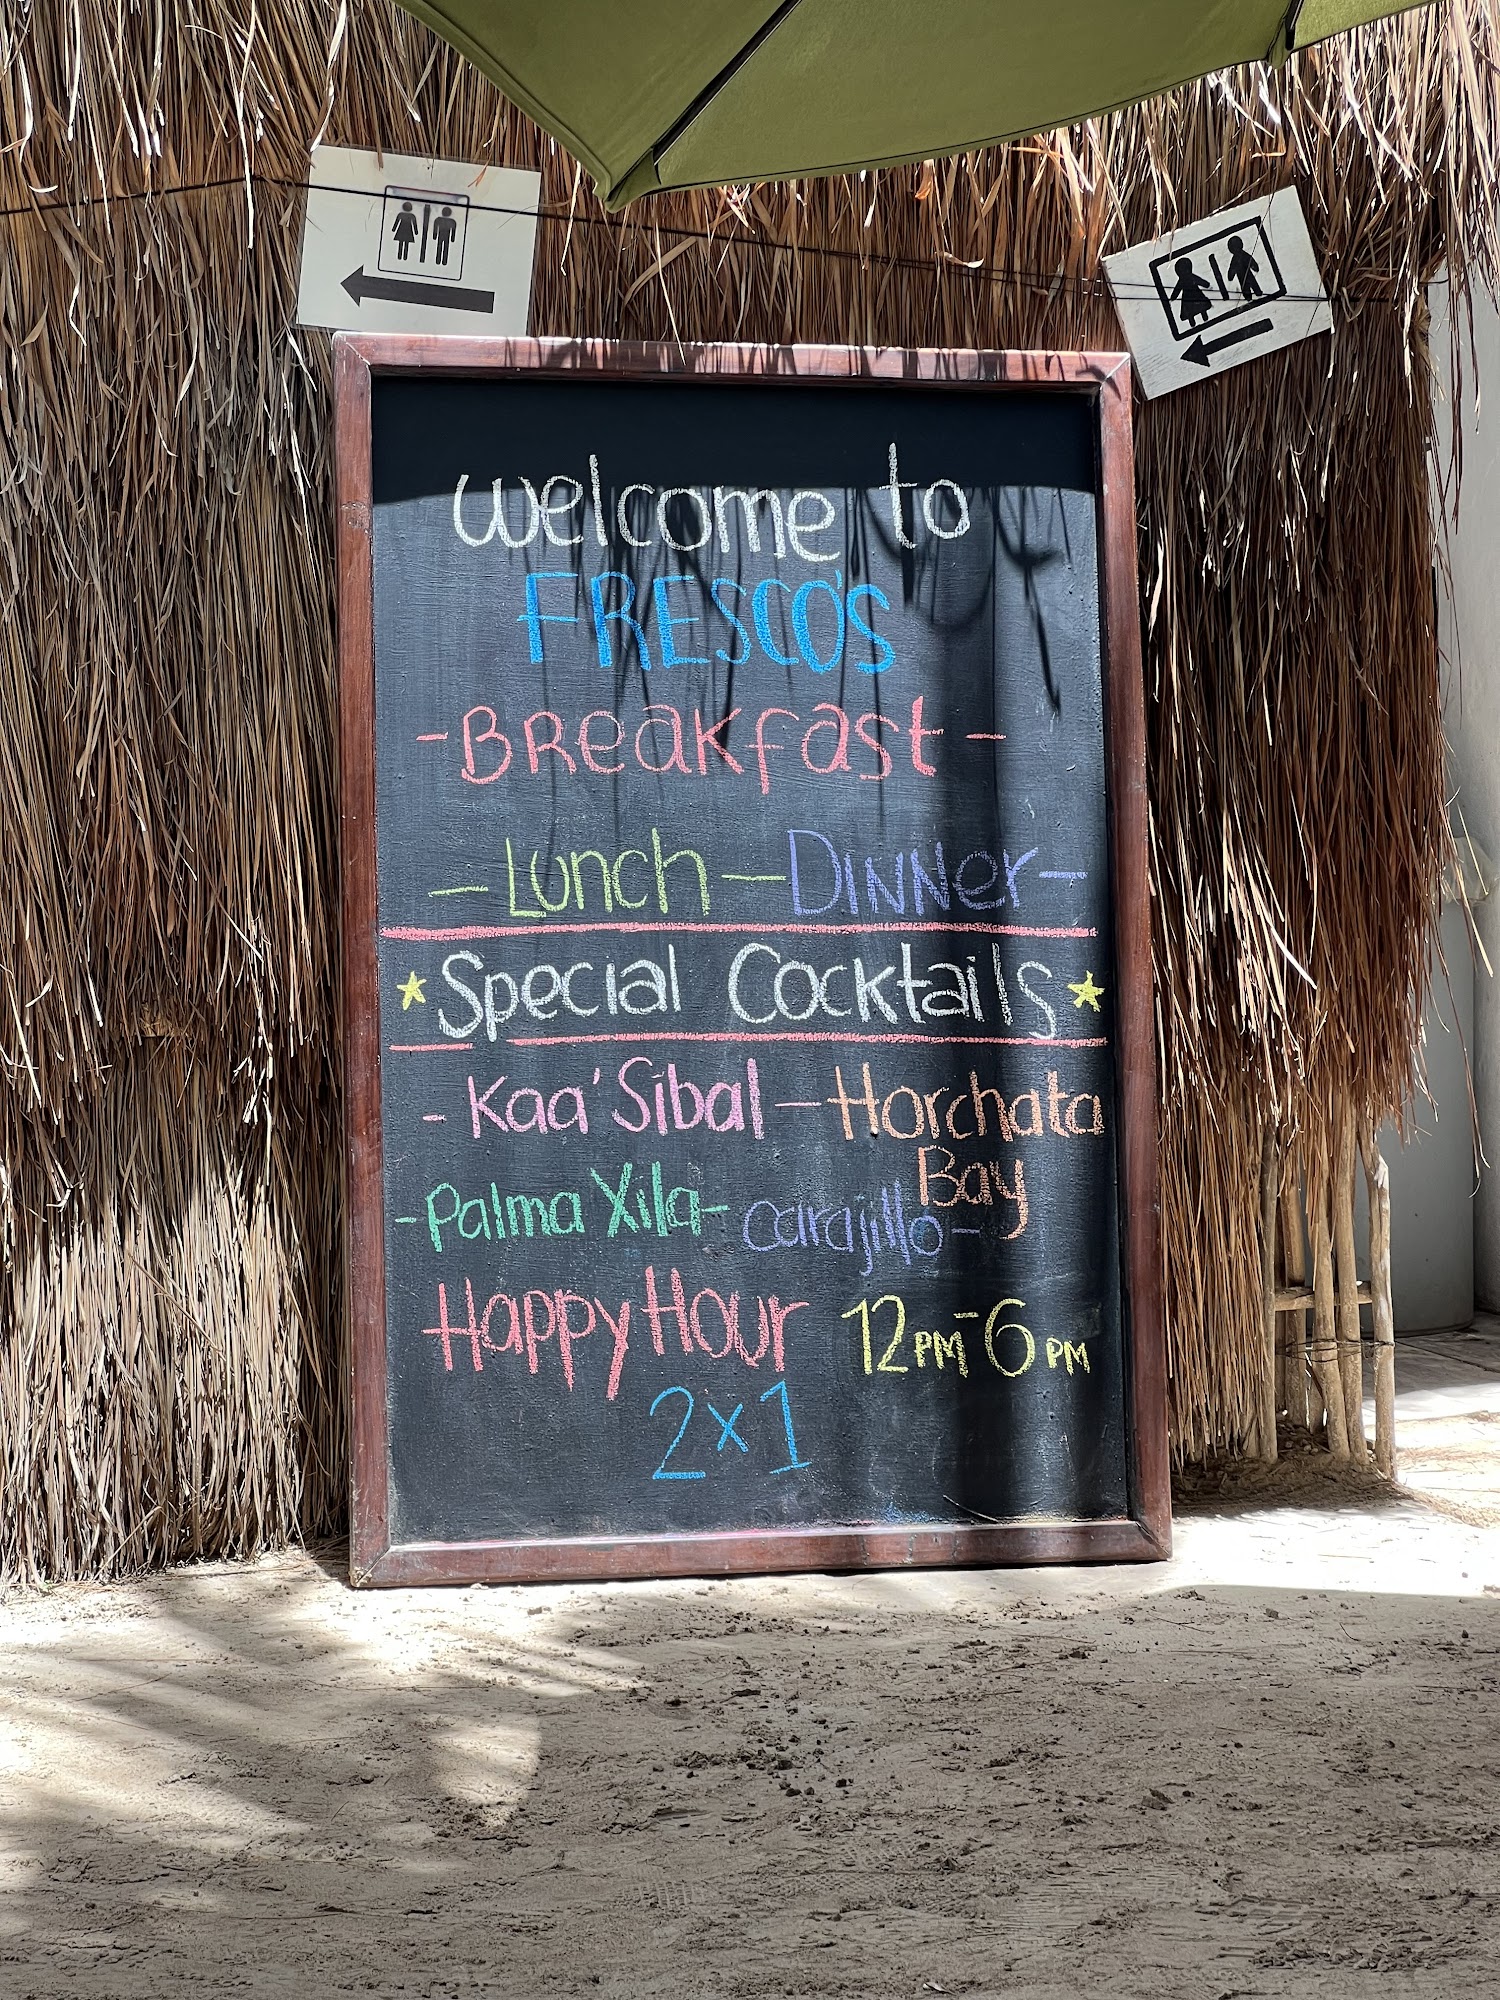 Welcome to
FRESCO'S
-Breakfast-
-Lunch-Dinner-
Special Cocktails
-Kaa' Sibal-Horchata
Bay
-Palma Xila-carajillo-
Happy Hour 12PM-6PM
2x1